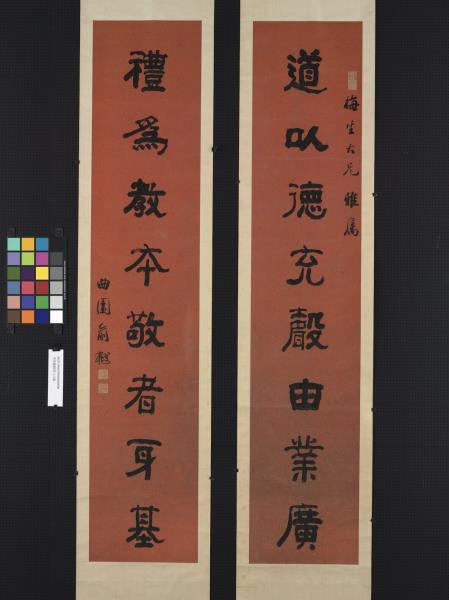 梅生大兄雅屬
道以德充聲由業廣
禮爲教本敬者身基
曲園俞樾